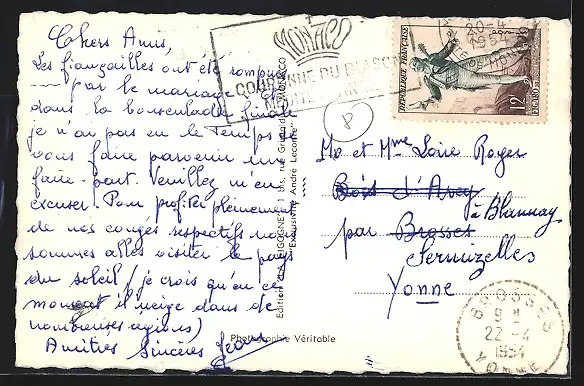 Chers Amis,
Les fiançailles ont été rompues
par le mariage et
dans la bousculade finale
je n'ai pas eu le temps de
vous faire parvenir un
faire-part. Veuillez m'en
excuser. Pour profiter pleinement
de nos congés respectifs nous
sommes allés visiter le pays
du soleil (je crois qu'en ce
moment il neige dans de
nombreuses régions)
Amitiés Sincères Jean
MONACO
8
REPUBLIQUE FRANÇAISE
12F
20-4
1954
Mr et Mme Loire Roger
Bois d'Arcy
à Blannay
par Brosses
Sermizelles
Yonne
BROSSES
9 H
22-4
1954
YONNE
Editions "LA CIGOGNE", 1 bis, rue Grimaldi - MONACO
Exclusivité André Leconte
Photographie Véritable